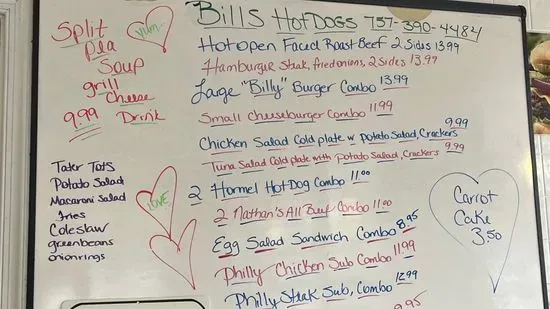 Bills HotDOGS 757-390-4484
Split
Pea
Soup
grill
Cheese
9.99 Drink
Yum
Hot open Faced Roast Beef 2 Sides 13.99
Hamburger Steak, fried onions, 2 sides 13.99
Large "Billy" Burger Combo 13.99
Small Cheeseburger Combo 11.99
Chicken Salad Cold plate w potato Salad, Crackers 9.99
Tuna Salad Cold plate with potato Salad, Crackers 9.99
2 Hormel HotDog Combo 11.00
2 Nathan's All Beef Combo 11.00
Egg Salad Sandwich Combo 8.95
Philly Chicken Sub Combo 11.99
Philly Steak Sub, Combo 12.99
9.95
Tater Tots
Potato Salad
Macaroni Salad
fries
Coleslaw
greenbeans
onionrings
LOVE
Carrot
Cake
3.50